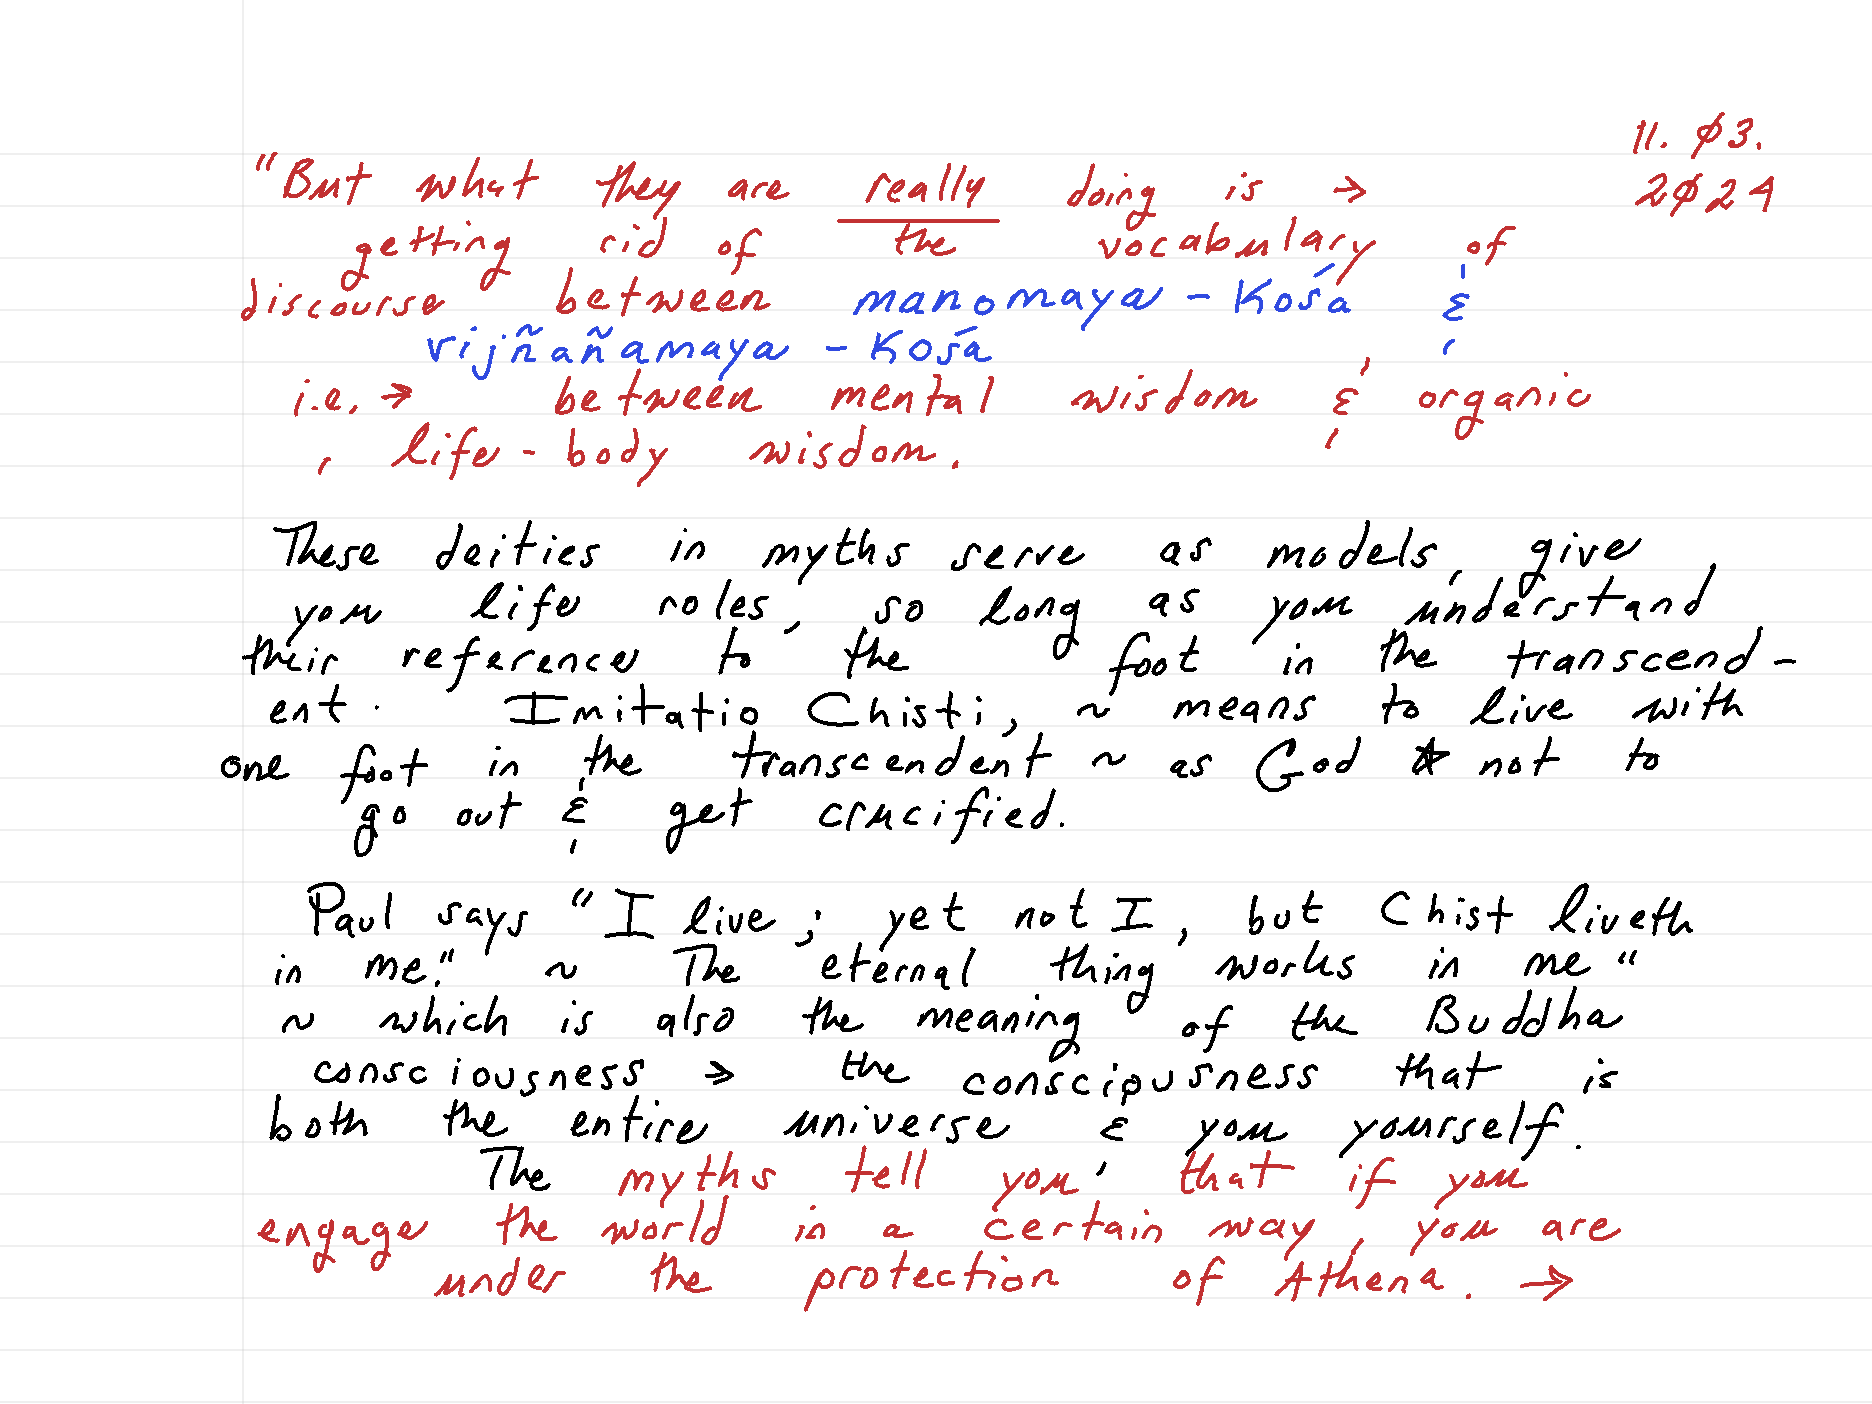 11. Ø3.
2Ø24
"But what they are really doing is →
getting rid of the vocabulary of
discourse between manomaya - Kośa &
vijñañamaya - Kośa
i.e. → between mental wisdom & organic
, life - body wisdom.
These deities in myths serve as models, give
you life roles, so long as you understand
their reference to the foot in the transcend -
ent. Imitatio Chisti, ~ means to live with
one foot in the transcendent ~ as God not to
go out & get crucified.
Paul says "I live; yet not I, but Chist liveth
in me." ~ The eternal thing works in me "
~ which is also the meaning of the Buddha
consciousness → the consciousness that is
both the entire universe & you yourself.
The myths tell you that if you
engage the world in a certain way, you are
under the protection of Athena. →